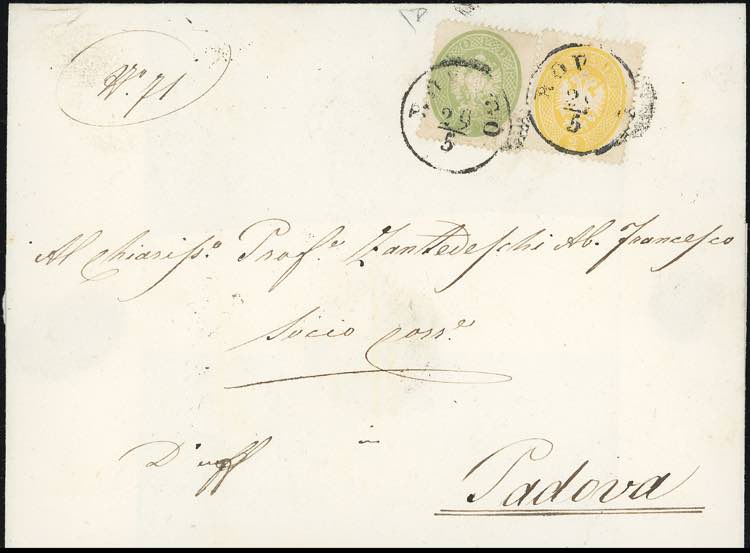 N.° 71
ROVIGO
29/5
ROV
2
5
Al Chiariss.° Prof.e Zantedeschi Ab. Francesco
Socio Corr.e
D'uff
in
Padova